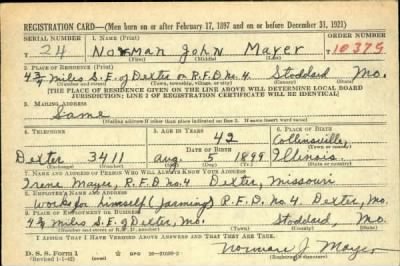 REGISTRATION CARD—(Men born on or after February 17, 1897 and on or before December 31, 1921)
SERIAL NUMBER 1. NAME (Print) ORDER NUMBER
24 Norman John Mayer 10379
(First) (Middle) (Last)
2. PLACE OF RESIDENCE (Print)
4 3/4 miles S.E. of Dexter on R.F.D. No. 4. Stoddard Mo.
(Number and street) (Town, township, village, or city) (County) (State)
[THE PLACE OF RESIDENCE GIVEN ON THE LINE ABOVE WILL DETERMINE LOCAL BOARD
JURISDICTION; LINE 2 OF REGISTRATION CERTIFICATE WILL BE IDENTICAL]
3. MAILING ADDRESS
Same
[Mailing address if other than place indicated on line 2. If same insert word same]
4. TELEPHONE 5. AGE IN YEARS 6. PLACE OF BIRTH
42 Collinsville
DATE OF BIRTH (Town or county)
Dexter 3411 Aug. 5 1899 Illinois
(Exchange) (Number) (Mo.) (Day) (Yr.) (State or country)
7. NAME AND ADDRESS OF PERSON WHO WILL ALWAYS KNOW YOUR ADDRESS
Irene Mayer, R.F.D. No. 4 Dexter, Missouri
8. EMPLOYER'S NAME AND ADDRESS
Works for himself (farming) R.F.D. No. 4, Dexter, Mo.
9. PLACE OF EMPLOYMENT OR BUSINESS
4 3/4 miles S.E. of Dexter, Mo. Stoddard, Mo.
(Number and street or R.F.D. number) (Town) (County) (State)
I AFFIRM THAT I HAVE VERIFIED ABOVE ANSWERS AND THAT THEY ARE TRUE.
D.S.S. Form 1 GPO Norman J. Mayer
(Revised 1-1-42) (over)